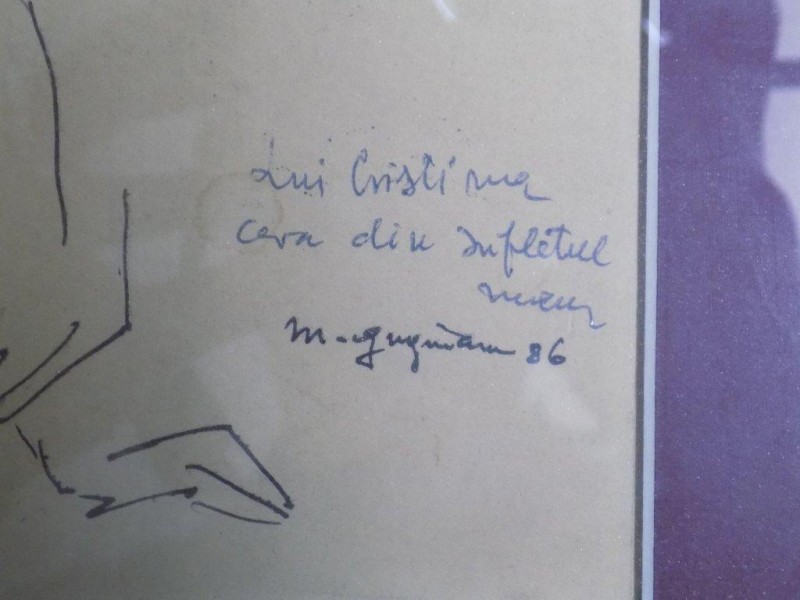 Lui Cristina
ceva din sufletul
meu
M. Guguianu 86